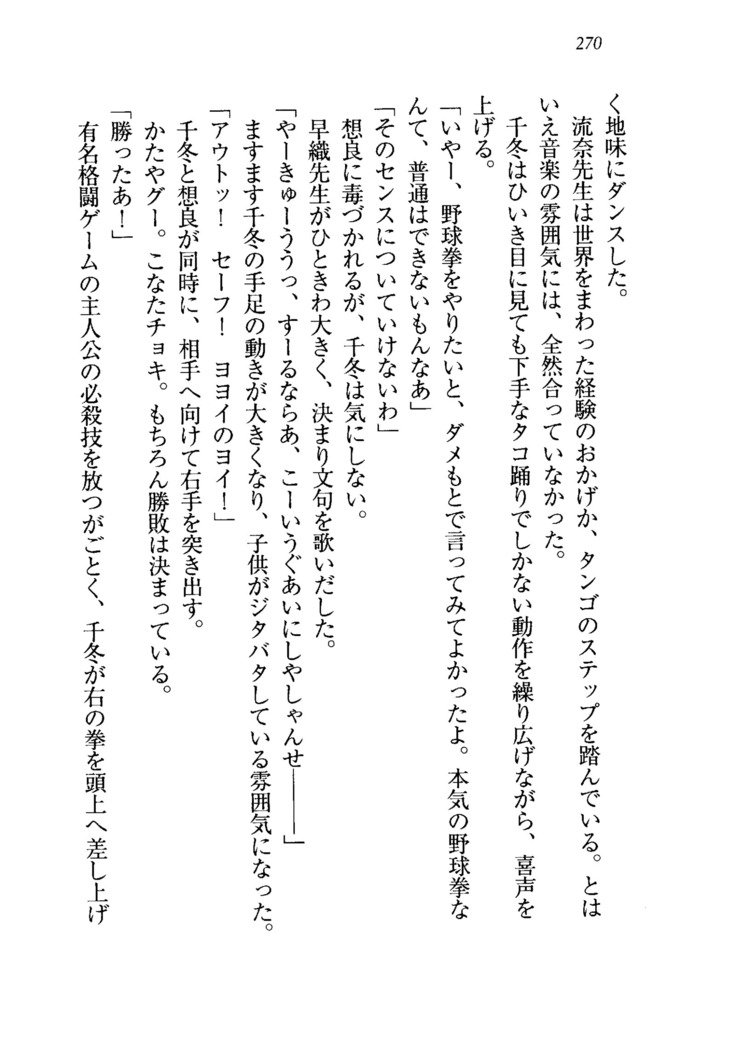 270
く地味にダンスした。
　流奈先生は世界をまわった経験のおかげか、タンゴのステップを踏んでいる。とは
いえ音楽の雰囲気には、全然合っていなかった。
　千冬はひいき目に見ても下手なタコ踊りでしかない動作を繰り広げながら、喜声を
上げる。
「いやー、野球拳をやりたいと、ダメもとで言ってみてよかったよ。本気の野球拳な
んて、普通はできないもんなあ」
「そのセンスについていけないわ」
　想良に毒づかれるが、千冬は気にしない。
　早織先生がひときわ大きく、決まり文句を歌いだした。
「やーきゅーううっ、すーるならあ、こーいうぐあいにしやしゃんせ———」
　ますます千冬の手足の動きが大きくなり、子供がジタバタしている雰囲気になった。
「アウトッ！　セーフ！　ヨヨイのヨイ！」
　千冬と想良が同時に、相手へ向けて右手を突き出す。
　かたやグー。こなたチョキ。もちろん勝敗は決まっている。
「勝ったあ！」
　有名格闘ゲームの主人公の必殺技を放つがごとく、千冬が右の拳を頭上へ差し上げ